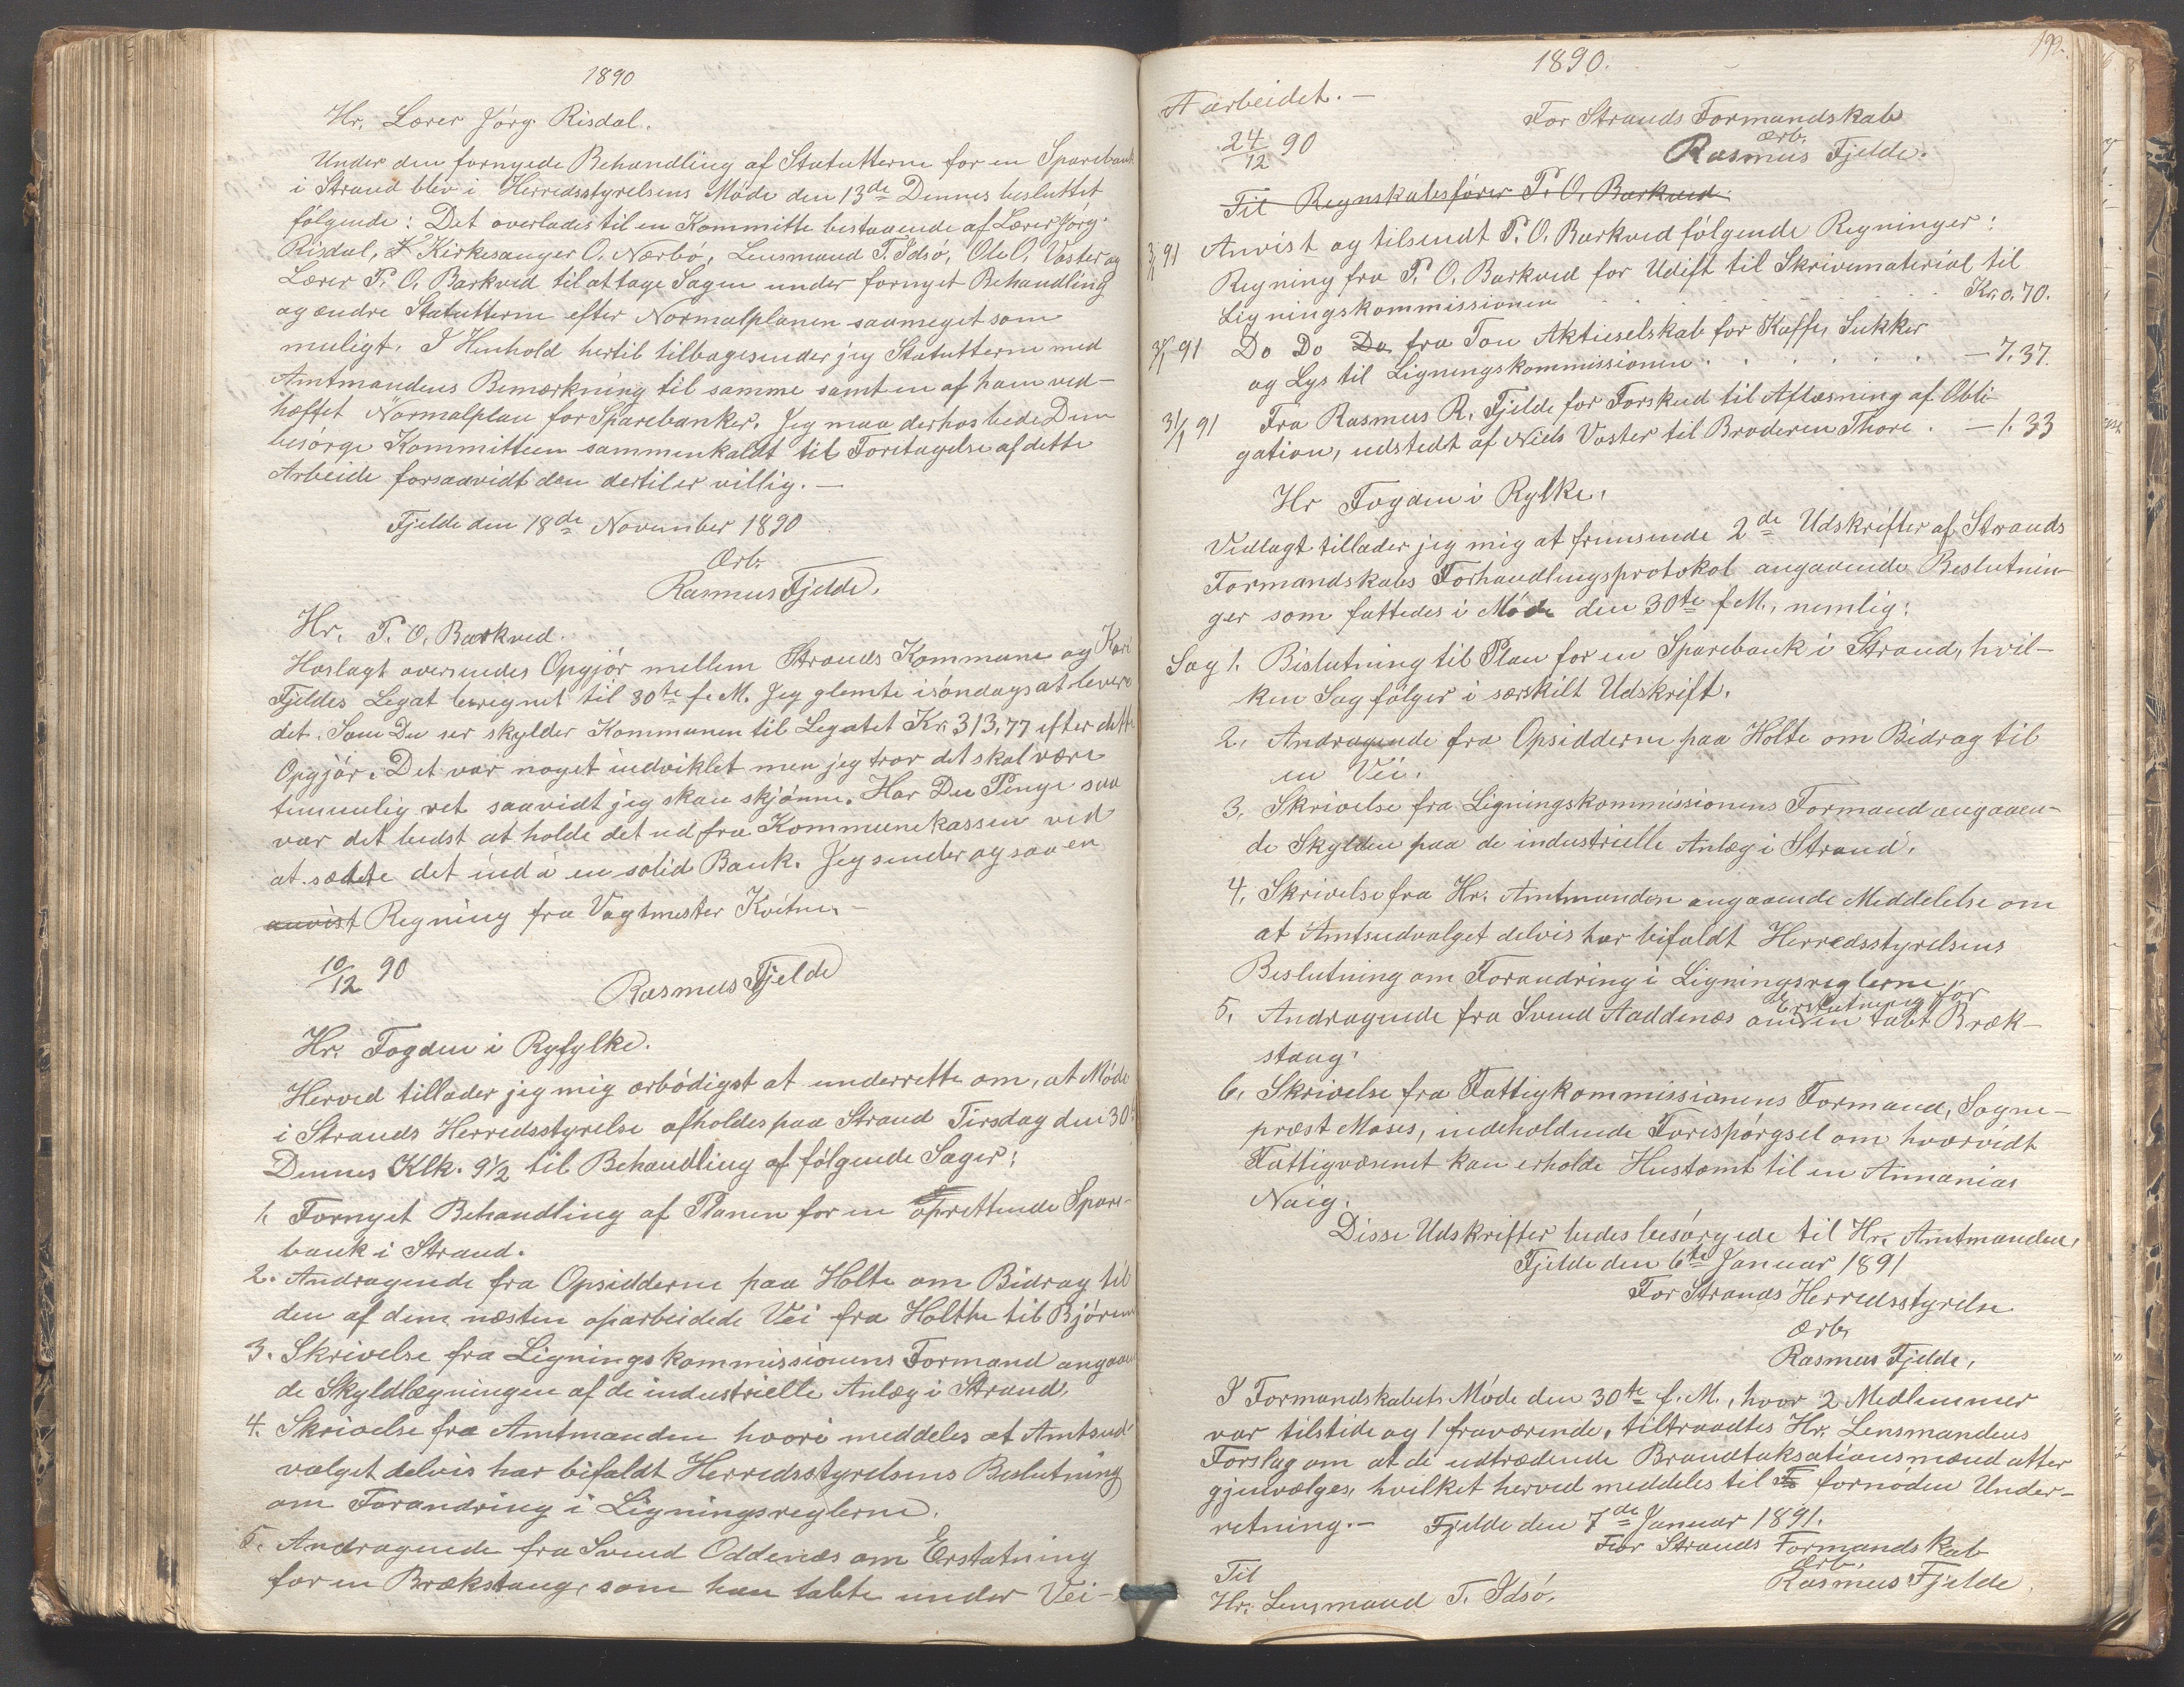 1890
Hr. Lærer Jörg Risdal.
Under den fornyede Behandling af Statutterne for en Sparebank
i Strand blev i Herredsstyrelsens Möde den 13de Dennes besluttet
fölgende: Det overlades til en Kommitte bestaaende af Lærer Jörg
Risdal, Kirkesanger O. Nærbö, Lensmand T. Idsö, Ole O. Vaster og
Lærer P. O. Barkved til at tage Sagen under fornyet Behandling
og ændre Statutterne efter Normalplanen saameget som
muligt. I Henhold hertil tilbagesender jeg Statutterne med
Amtmandens Bemærkning til samme samt en af ham ved-
hæftet Normalplan for Sparebanker. Jeg maa derhos bede Dem
besörge Kommitteen sammenkaldt til Foretagelse af dette
Arbeide forsaavidt den dertil er villig. —
Fjelde den 18de November 1890
Ærb.
Rasmus Fjelde.
Hr. P. O. Barkved.
Hoslagt oversendes Opgjör mellem Strands Kommune og Kari
Fjeldes Legat beregnet til 30te f. M. Jeg glemte isöndags at levere
det. Som Du ser skylder Kommunen til Legatet Kr. 313,77 efter dette
Opgjör. Det var noget indviklet men jeg tror det skal være
temmelig ret saavidt jeg skan skjönne. Har Du Penge saa
var det bedst at holde det ud fra Kommunekassen ved
at sætte det ind i en solid Bank. Jeg sender ogsaa en
anvist Regning fra Vagtmester Kvitne. —
10/12 90
Rasmus Fjelde
Hr. Fogden i Ryfylke.
Herved tillader jeg mig ærbödigst at underrette om, at Möde
i Strands Herredsstyrelse afholdes paa Strand Tirsdag den 30te
Dennes Klk. 9½ til Behandling af fölgende Sager:
1. Fornyet Behandling af Planen for en oprettende Spare-
bank i Strand.
2. Andragende fra Opsidderne paa Holte om Bidrag til
den af dem næsten oparbeidede Vei fra Holthe til Björem
3. Skrivelse fra Ligningskommissionens Formand angaaen
de Skyldlægningen af de industrielle Anlæg i Strand.
4. Skrivelse fra Amtmanden hvori meddeles at Amtsud
valget delvis har bifaldt Herredsstyrelsens Beslutning
om Forandring i Ligningsreglerne.
5. Andragende fra Svend Oddenæs om Erstatning
for en Brækstang, som han tabte under Vei-
199.
1890.
Aarbeidet. —
For Strands Formandskab
24/12 90
Ærb.
Rasmus Fjelde.
Til Regnskabsförer P. O. Barkved
3/1 91 Anvist og tilsendt P. O. Barkved fölgende Regninger:
Regning fra P. O. Barkved for Udift til Skrivematerial til
Ligningskommissionen . . . . . . . Kr. 0.70.
3/1 91 Do Do Do fra Tou Aktieselskab for Kaffe, Sukker
og Lys til Ligningskommissionen . . . . . . — 7,37.
3/1 91 Fra Rasmus R. Fjelde for Forskud til Aflæsning af Obli-
gation, udstedt af Niels Vaster til Broderen Thore . — 1.33
Hr Fogden i Rylke,
Vedlagt tillader jeg mig at fremsende 2de Udskrifter af Strands
Formandskabs Forhandlingsprotokol angaaende Beslutnin-
ger som fattedes i Möde den 30te f M., nemlig:
Sag 1. Bislutning til Plan for en Sparebank i Strand, hvil-
ken Sag fölger i særskilt Udskrift.
2. Andragende fra Opsidderne paa Holte om Bidrag til
en Vei.
3. Skrivelse fra Ligningskommissionens Formand angaaen-
de Skylden paa de industrielle Anlæg i Strand.
4. Skrivelse fra Hr. Amtmanden angaaende Meddelelse om
at Amtsudvalget delvis har bifaldt Herredsstyrelsens
Beslutning om Forandring i Ligningsreglerne.
Erstatning for
5. Andragende fra Svend Aaddenæs om en tabt Bræk-
stang.
6. Skrivelse fra Fattigkommissionens Formand, Sogne-
præst Moses, indeholdende Forespörgsel om hvorvidt
Fattigvæsenet kan erholde Hustomt til en Annanias
Naig.
Disse Udskrifter bedes besörgede til Hr. Amtmanden,
Fjelde den 6te Januar 1891
For Strands Herredsstyrelse
Ærb.
Rasmus Fjelde,
I Formandskabets Möde den 30te f. M., hvor 2 Medlemmer
var tilstede og 1 fraværende, tiltraadtes Hr. Lensmandens
Forslag om at de udtrædende Brandtaksationsmænd atter
gjenvælges, hvilket herved meddeles til fornöden Under-
retning. — Fjelde den 7de Januar 1891.
For Strands Formandskab
Ærb.
Til
Rasmus Fjelde
Hr. Lensmand T. Idsö.